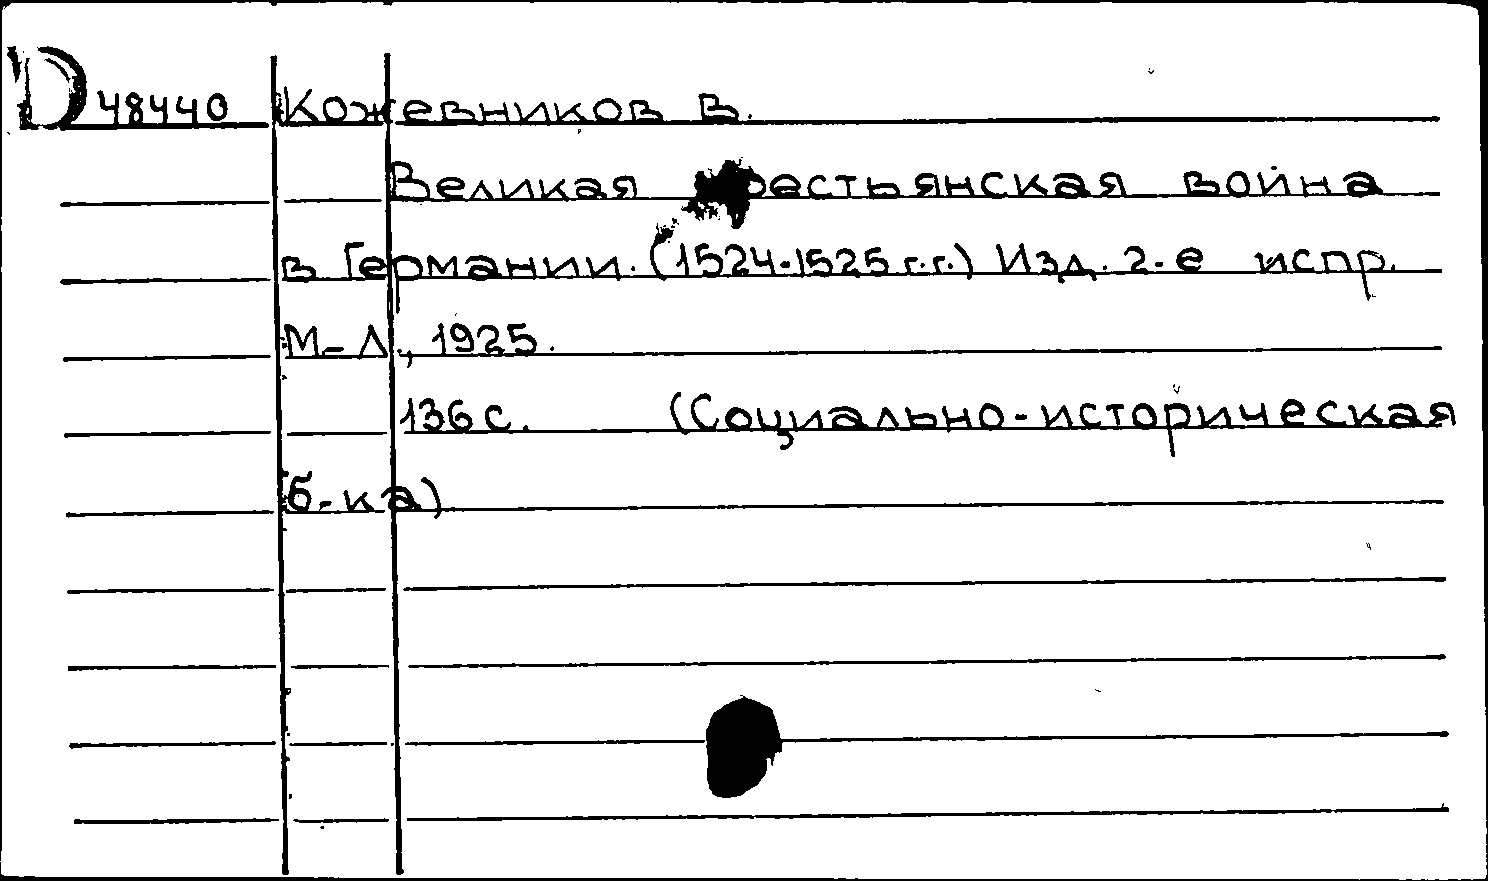 D 48440 Кожевников В.
Великая крестьянская война
в Германии. (1524-1525 г.г.) Изд. 2-е испр.
М-Л., 1925.
136 с. (Социально-историческая
б-ка)